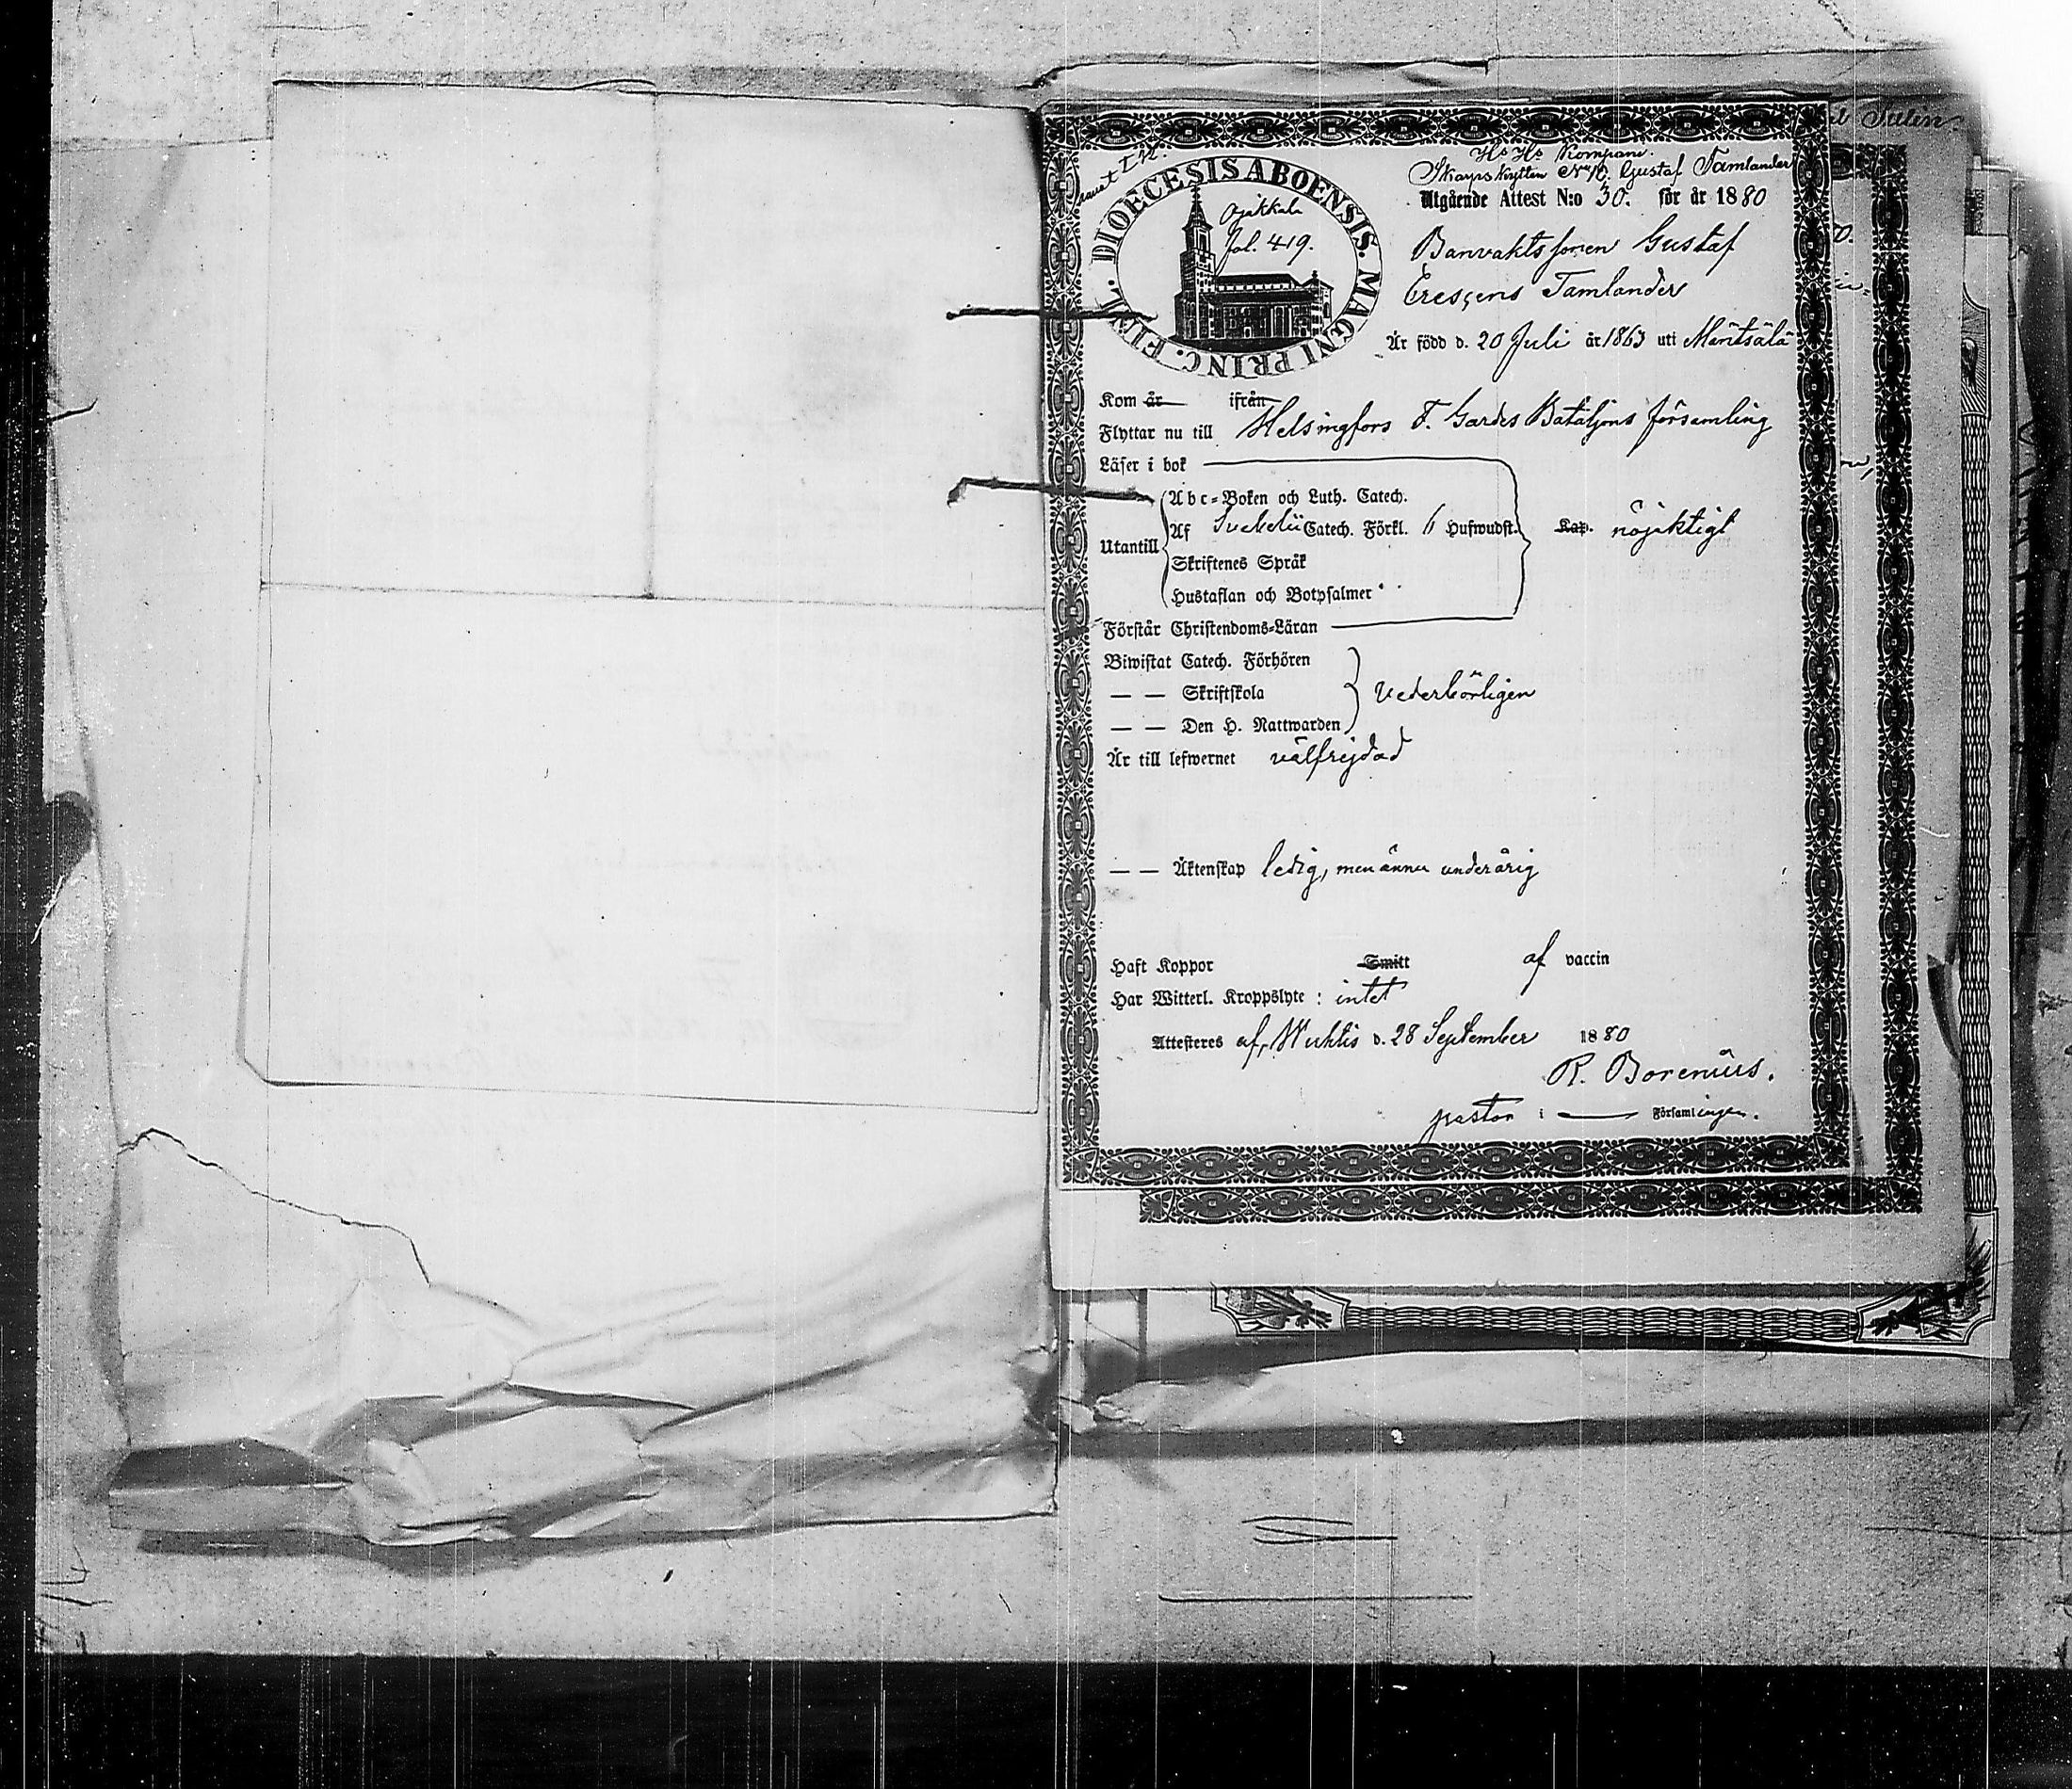 Hs Hs Kompani.
Skarpskytten No 10. Gustaf Tamlander
DIOECESIS ABOENSIS. MAGNI PRINC. FINL.
Ojakkala
fol. 419.
Utgående Attest N:o 30. för år 1880
Banvaktssonen Gustaf
Tamlander
Är född d. 20 Juli år 1863 uti Mäntsälä
Kom år ifrån
Flyttar nu till Helsingfors F. Gardes Bataljons församling
Läser i bok
Abc-Boken och Luth. Catech.
Utantill Af Svebelii Catech. Förkl. 6 Hufwudst. Kap. nöjaktigt
Skriftenes Språk
Hustaflan och Botpsalmer
Förstår Christendoms-Läran
Biwistat Catech. Förhören
— — Skriftskola vederbörligen
— — Den H. Nattwarden
Är till lefwernet välfrejdad
— — Äktenskap ledig, men ännu underårig
Haft Koppor Smitt af vaccin
Har Witterl. Kroppslyte: intet
Attesteres af, Wichtis d. 28 September 1880
R. Borenius.
pastor i — Församlingen.